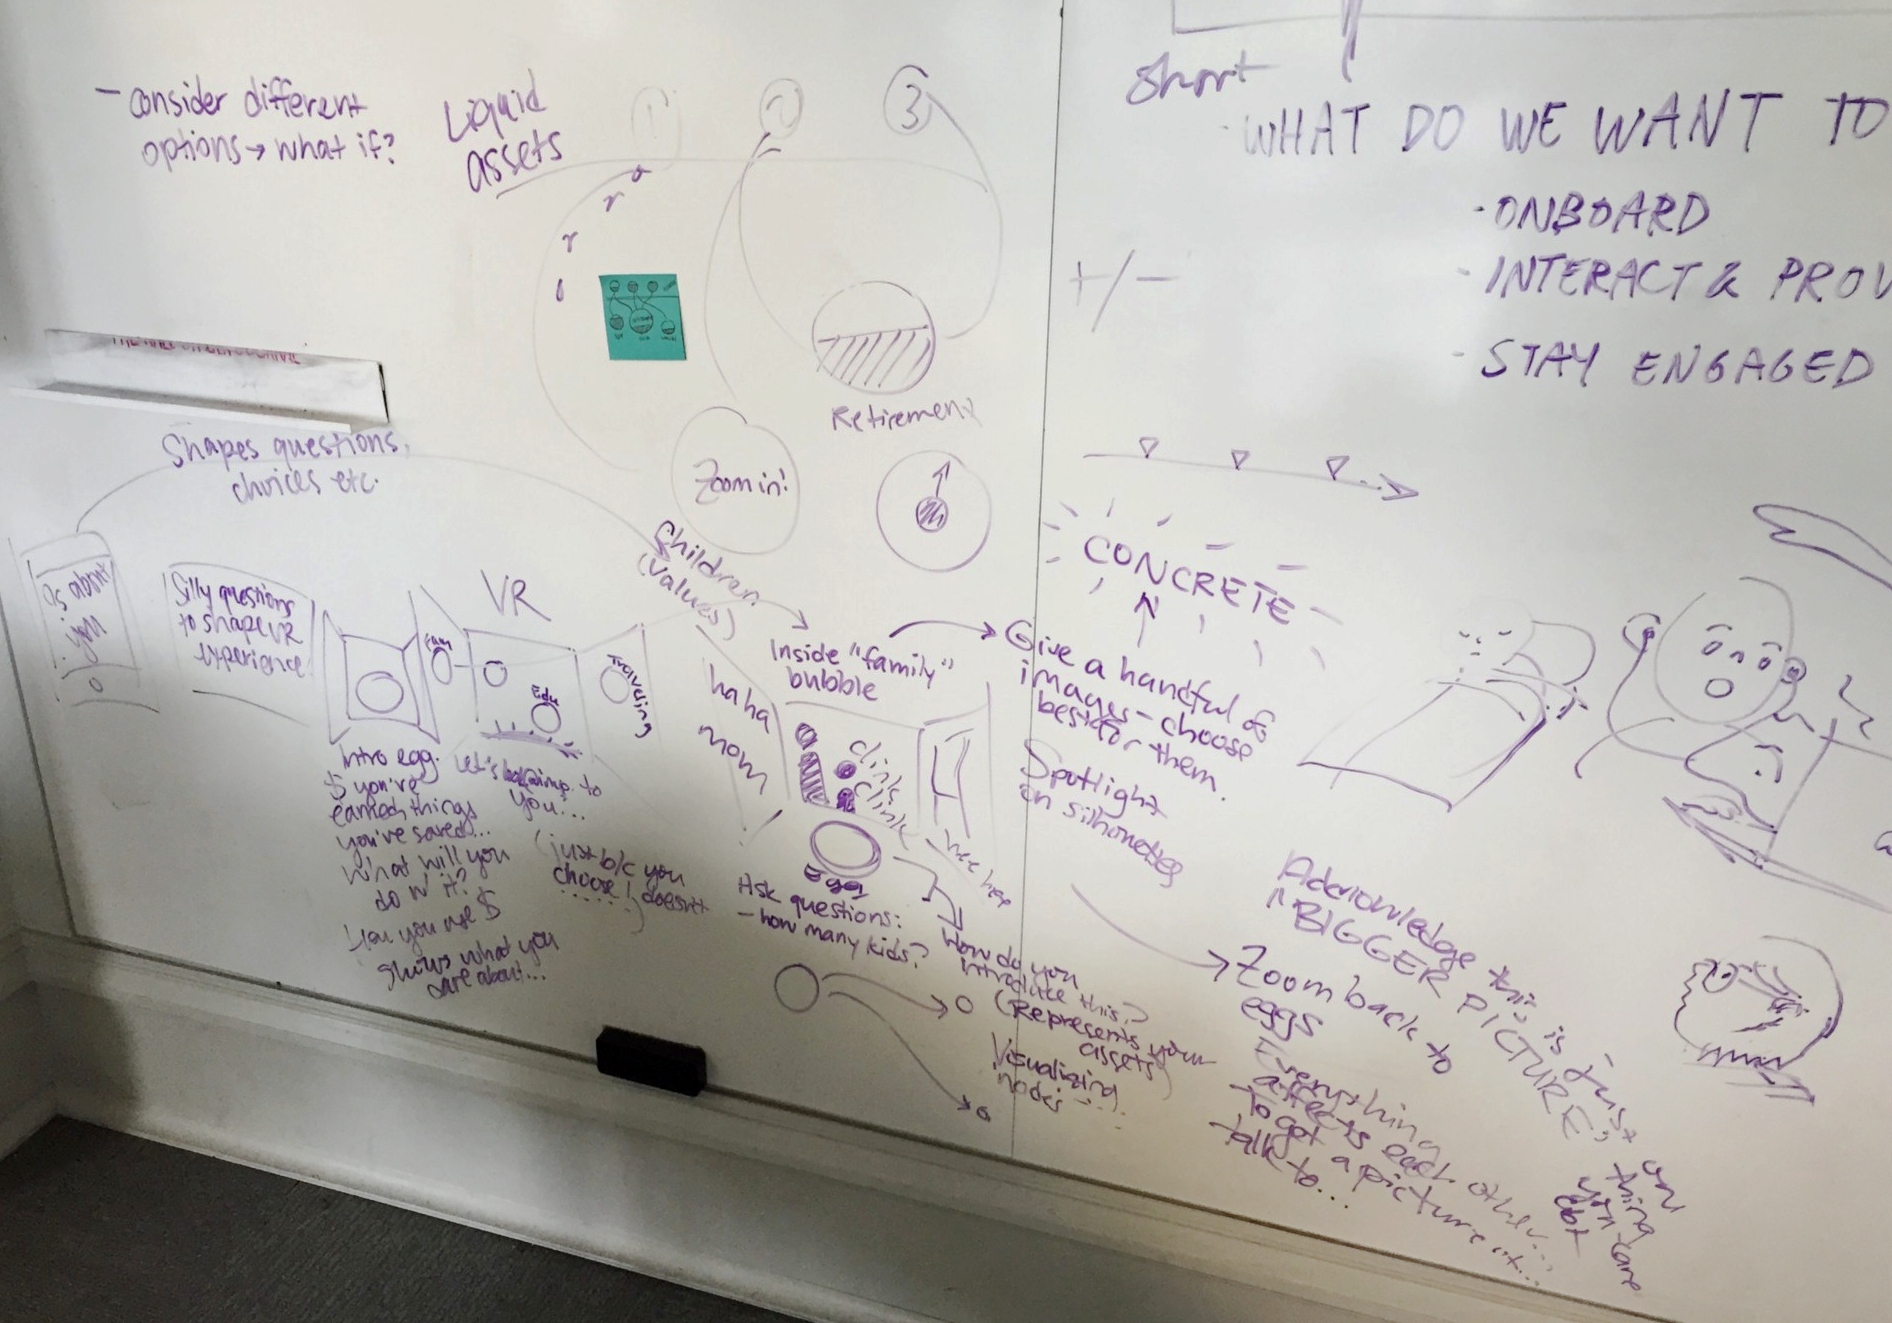 - consider different
options → what if?
Liquid
assets
1
2
3
Retirement
Zoom in!
Shapes questions,
choices etc.
Children
(values)
Qs about
you
Silly questions
to shape VR
experience
VR
Fam
Edu
Traveling
Intro egg.
$ you've
earned, things
you've saved...
What will you
do w/ it?
How you use $
shows what you
care about...
Let's bring to
you...
(just b/c you
choose 1 doesn't
haha
mom
!
Inside "family"
bubble
clink
clink
clink
Egg
Ask questions:
- how many kids?
How do you
introduce this?
(Represents your
assets)
Visualizing
nodes...
Short
WHAT DO WE WANT TO
· ONBOARD
- INTERACT & PROV
- STAY ENGAGED
+/-
CONCRETE
Give a handful of
images - choose
best for them.
Spotlight
on silhouettes
Acknowledge this is just one thing you care abt
"BIGGER PICTURE"
Zoom back to
eggs
Everything
affects each other...
To get a picture of...
talk to...